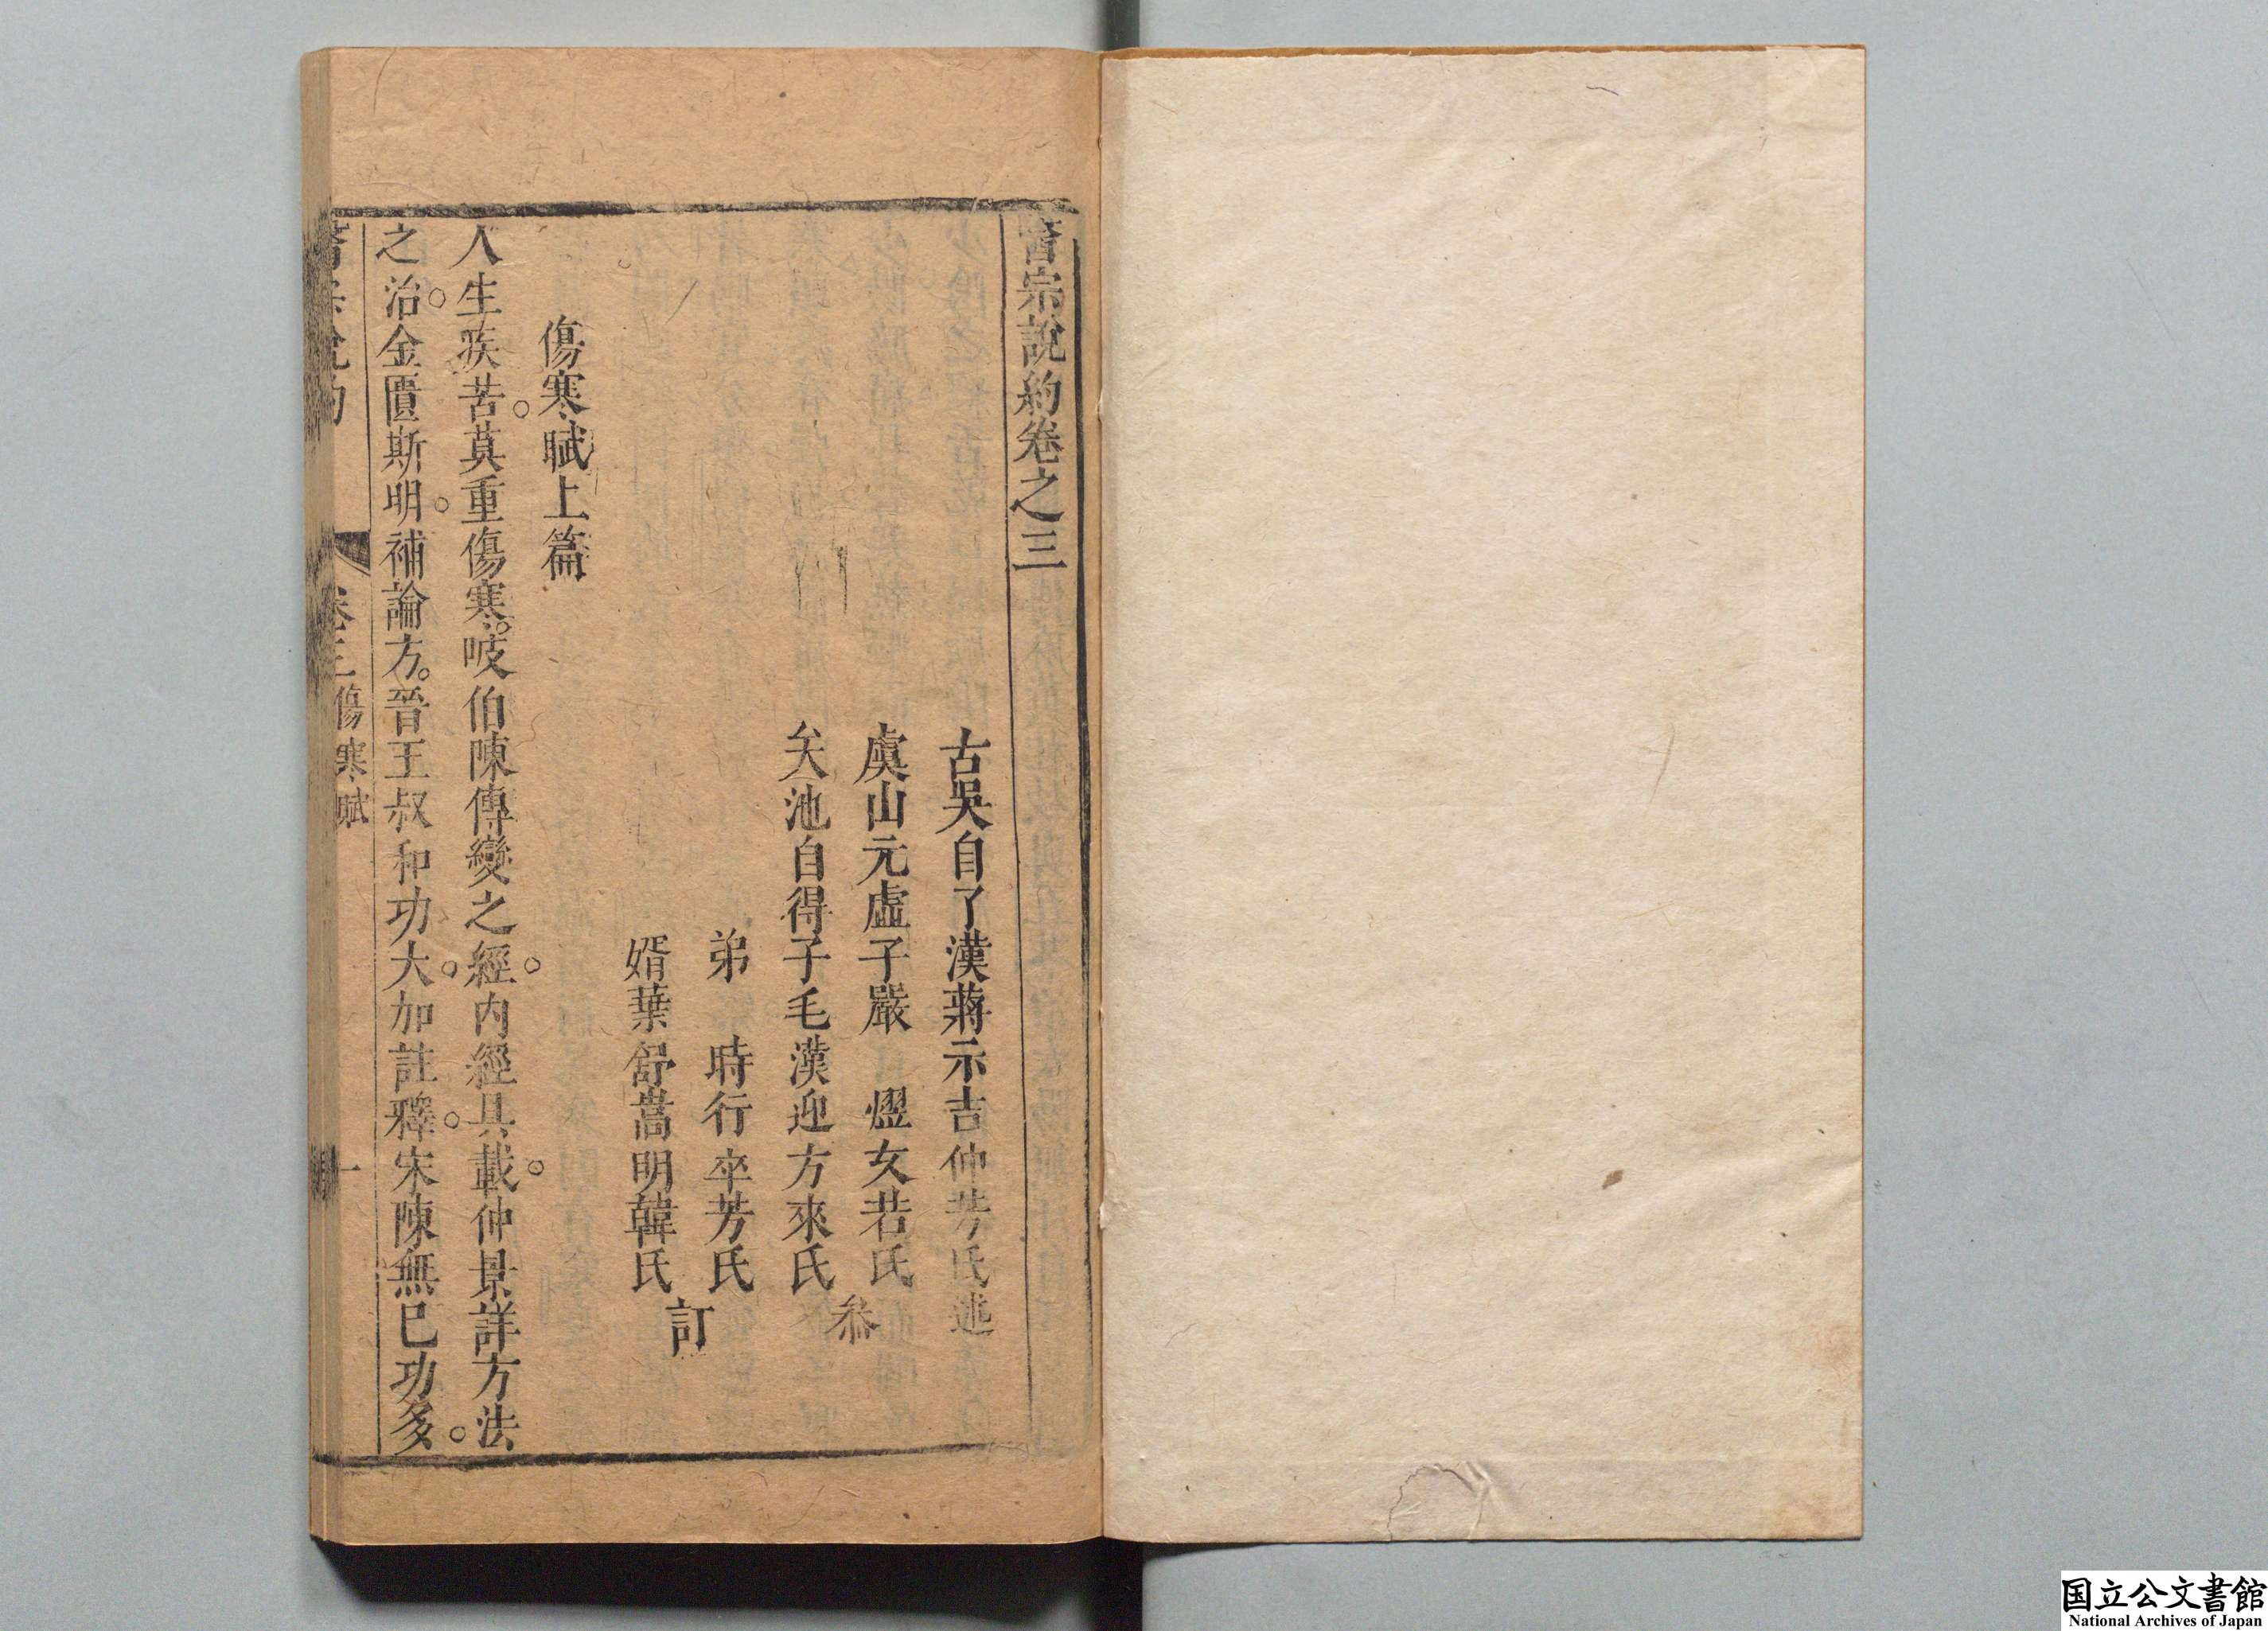 醫宗說約卷之三
古吳自了漢蔣示吉仲芳氏述
虞山元虛子嚴 熤女若氏
天池自得子毛漢迎方來氏 叅
弟 時行卒芳氏
婿葉舒嵩明韓氏 訂
傷寒賦上篇
人生疾苦。莫重傷寒。岐伯陳傳變之經。內經具載。仲景詳方法
之治。金匱斯明。補論方。晉王叔和功大。加註釋。宋陳無已功多。
醫宗說約 卷三 傷寒賦 一
国立公文書館
National Archives of Japan